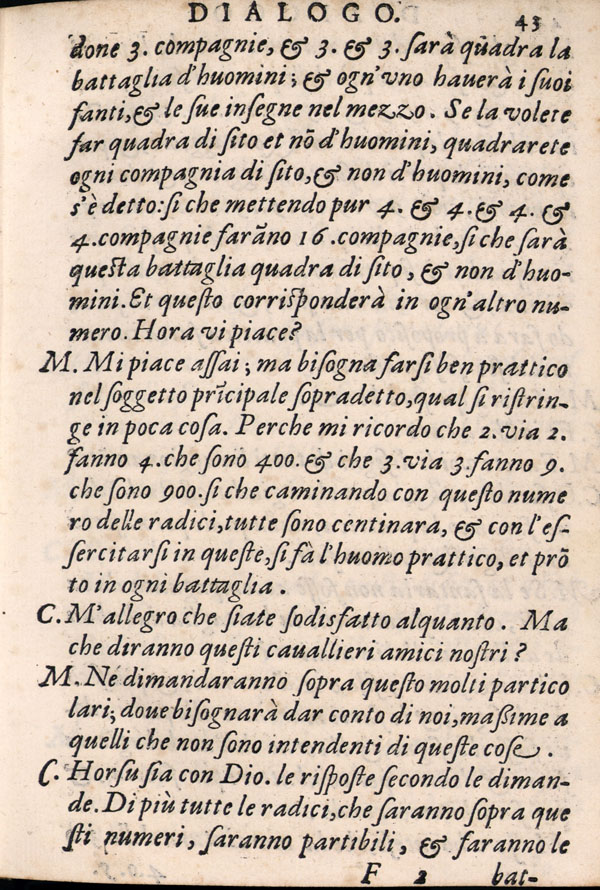 DIALOGO. 43
done 3. compagnie, & 3. & 3. sarà quadra la
battaglia d'huomini; & ogn'vno hauerà i suoi
fanti, & le sue insegne nel mezzo. Se la volete
far quadra di sito et nõ d'huomini, quadrarete
ogni compagnia di sito, & non d'huomini, come
s'è detto: si che mettendo pur 4. & 4. & 4. &
4. compagnie farãno 16. compagnie, si che sarà
questa battaglia quadra di sito, & non d'huo-
mini. Et questo corrisponderà in ogn'altro nu-
mero. Hora vi piace?
M. Mi piace assai; ma bisogna farsi ben prattico
nel soggetto prĩcipale sopradetto, qual si ristrin-
ge in poca cosa. Perche mi ricordo che 2. via 2.
fanno 4. che sono 400. & che 3. via 3. fanno 9.
che sono 900. si che caminando con questo nume
ro delle radici, tutte sono centinara, & con l'es-
sercitarsi in queste, si fà l'huomo prattico, et prõ
to in ogni battaglia.
C. M'allegro che siate sodisfatto alquanto. Ma
che diranno questi cauallieri amici nostri?
M. Ne dimandaranno sopra questo molti partico
lari; doue bisognarà dar conto di noi, massime a
quelli che non sono intendenti di queste cose.
C. Horsu sia con Dio. le risposte secondo le diman-
de. Di più tutte le radici, che saranno sopra que
sti numeri, saranno partibili, & faranno le
F 2 bat-